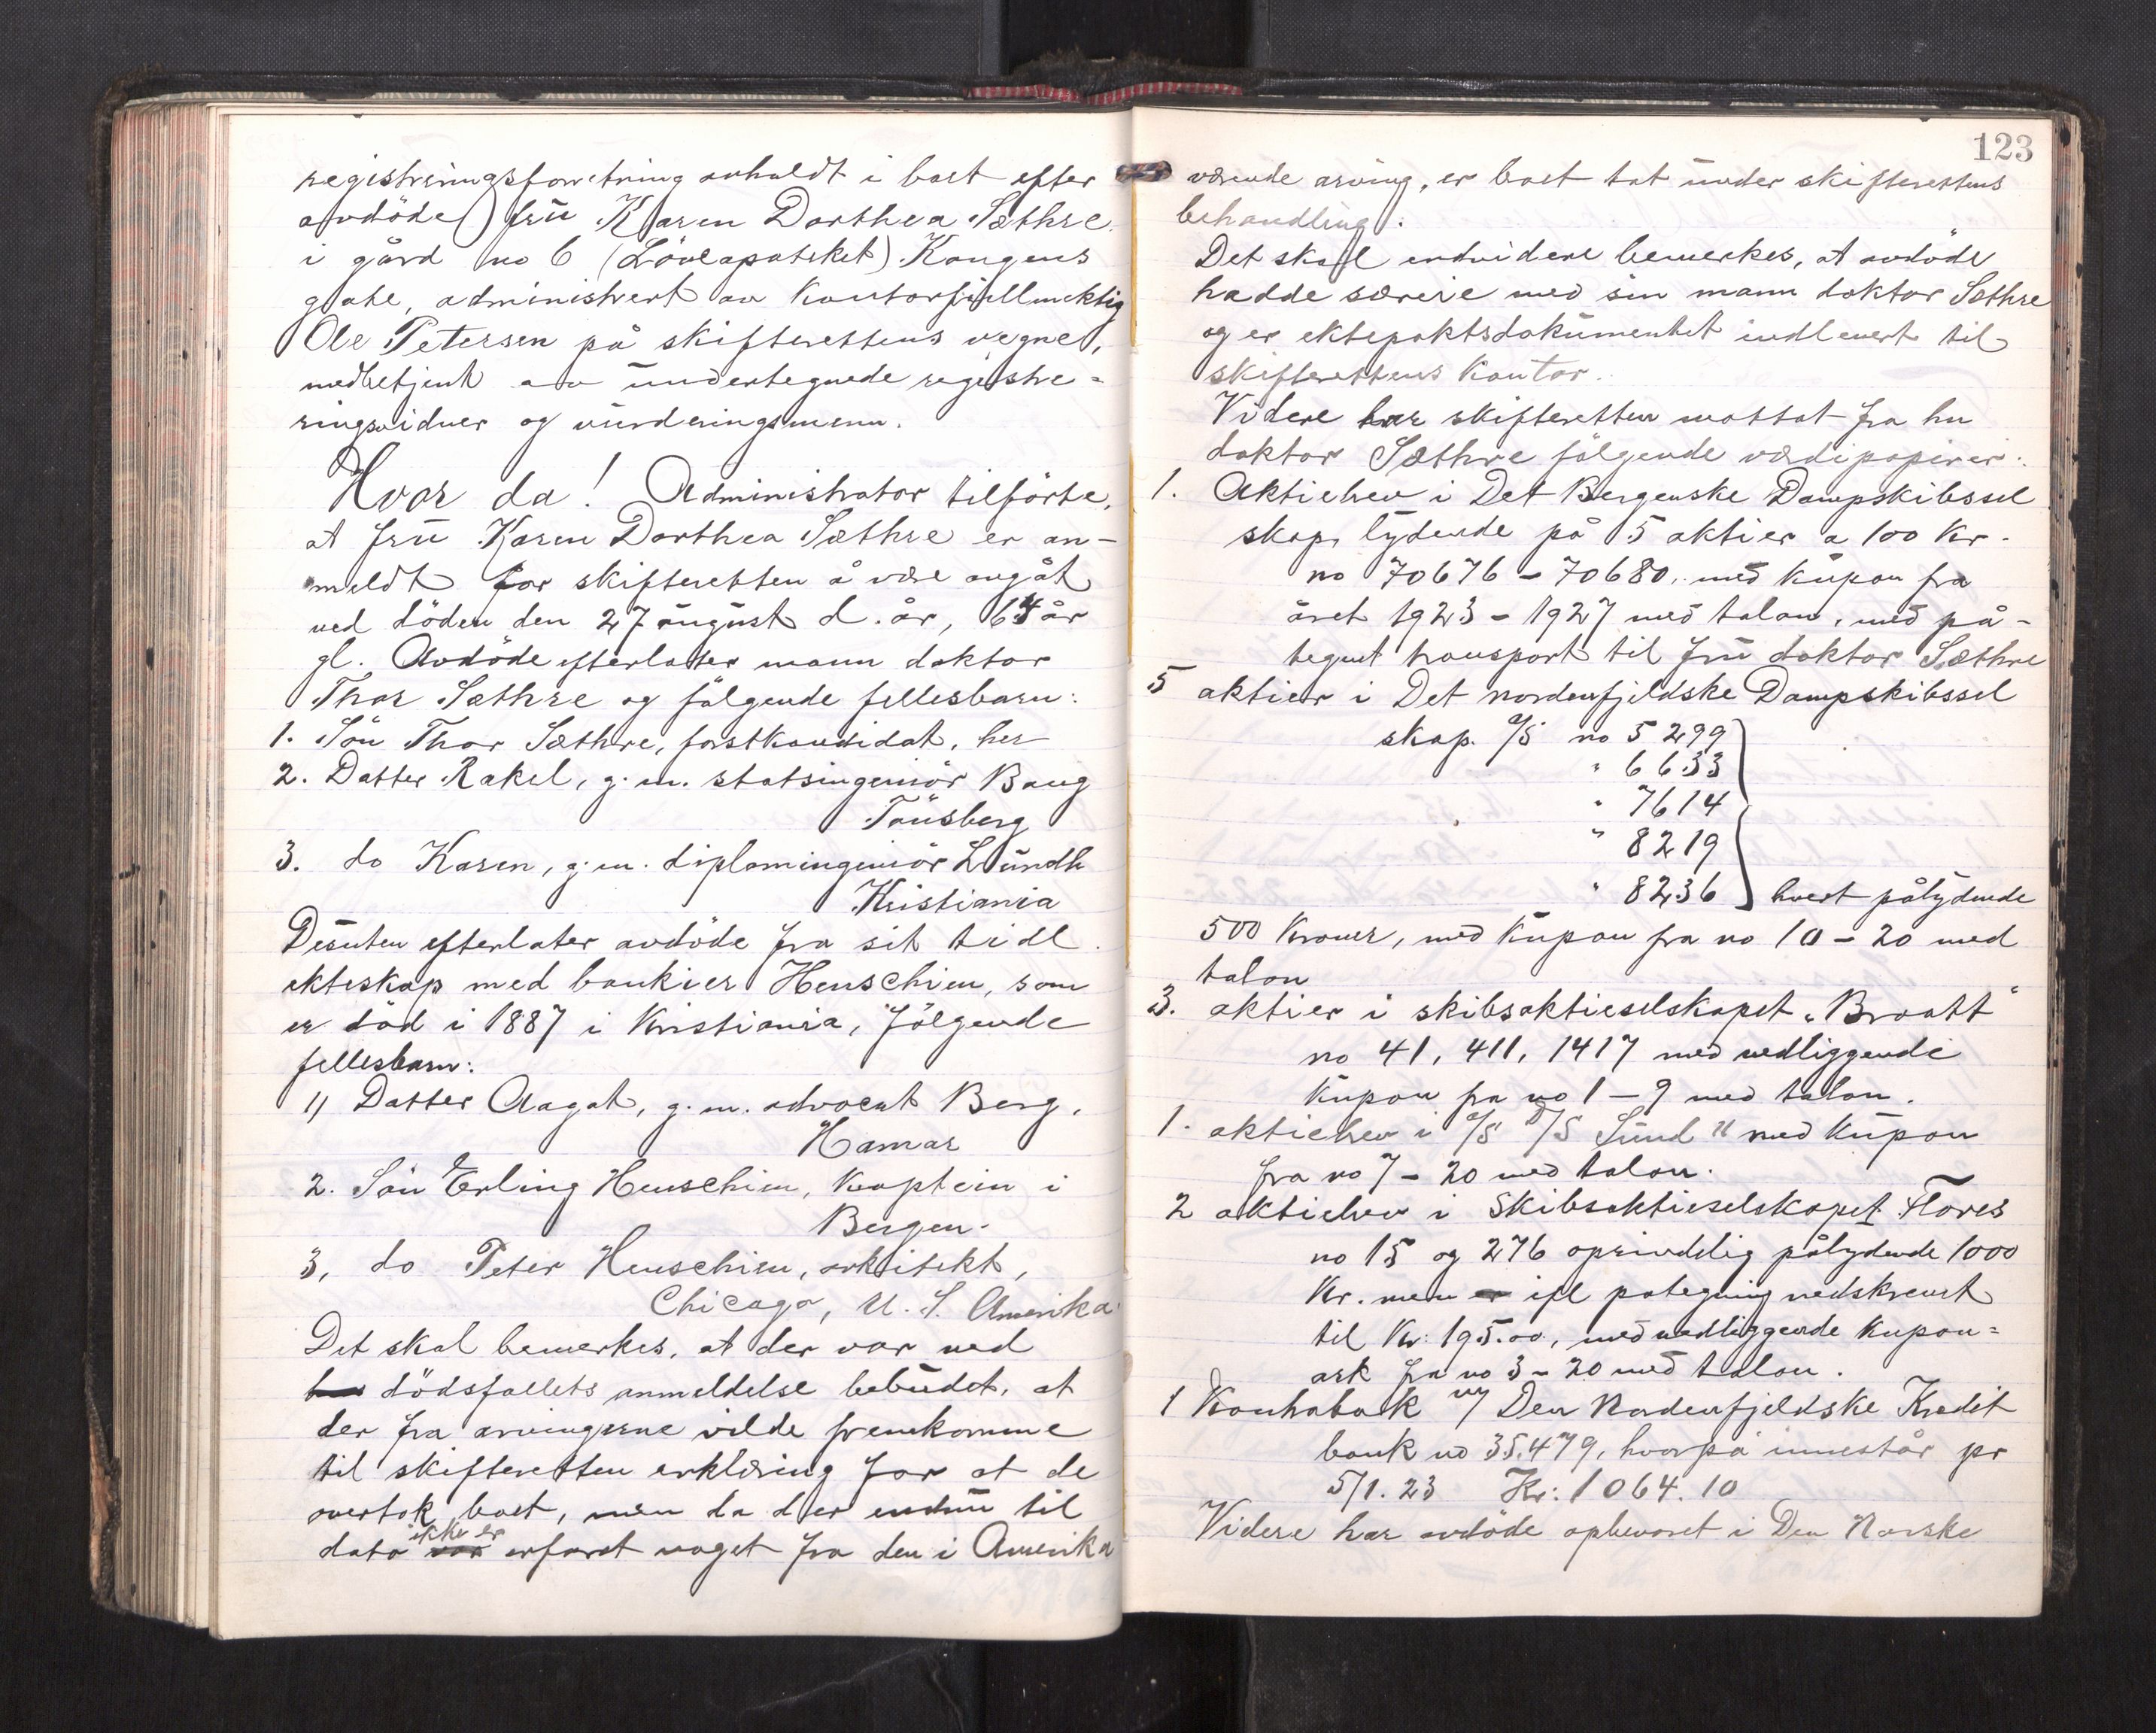 registreringsforretning avholdt i boet efter
avdöde frü Karen Dorthea Sæthre
i gård no 6 (Löveapoteket) Kongens
gate, administrert av kontorfüllmektig
Ole Petersen på skifterettens vegne,
medbetjent av ündertegnede registre-
ringsvidner og vürderingsmenn.
Hvor da! Administrator tilförte,
at frü Karen Dorthea Sæthre er an-
meldt for skifteretten å være avgåt
ved döden den 27 aügüst d. år, 64 år
gl. Avdöde efterlater mann doktor
Thor Sæthre og fölgende fellesbarn:
1. Sön Thor Sæthre, forstkandidat, her
2. Datter Rakel, g.m. statsingeniör Baug
Tönsberg
3. do Karen, g.m. diplomingeniör Lündh
Kristiania
Desuten efterlater avdöde fra sit tidl.
ekteskap med bankier Henschien, som
er död i 1887 i Kristiania, fölgende
fellesbarn:
1) Datter Aagot, g.m. advocat Berg,
Hamar
2. Sön Erling Henschien, kaptein i
Bergen.
3, do Peter Henschien, arkitekt,
Chicago, U. S. Amerika
Det skal bemerkes, at der var ved
dödsfallets anmeldelse bebüdet, at
der fra arvingerne vilde fremkomme
til skifteretten erklæring for at de
overtok boet, men da der endnü til
dato ikke er erfaret noget fra den i Amerika
123
værende arving, er boet tat ünder skifterettens
behandling.
Det skal endvidere bemerkes, at avdöde
hadde særeie med sin mann doktor Sæthre
og er ektepaktsdokümentet indlevert til
skifterettens kontor.
Videre har skifteretten mottat fra hr
doktor Sæthre fölgende værdipapirer:
1. Aktiebrev i Det Bergenske Dampskibssel
skap, lydende på 5 aktier a 100 Kr.
no 70676 - 70680. med küpon fra
året 1923 - 1927 med talon, med på-
tegnet transport til frü doktor Sæthre
5 aktier i Det nordenfjeldske Dampskibssel
skap. A/S no 5299
" 6633
" 7614
" 8219
" 8236 hvert pålydende
500 Kroner, med küpon fra no 10 - 20 med
talon
3. aktier i skibsaktieselskapet "Bratt"
no 41, 411, 1417 med vedliggende
küpon fra no 1 - 9 med talon.
1. aktiebrev i A/S D/S Sünd" med küpon
fra no 7 - 20 med talon.
2 aktiebrev i Skibsaktieselskapet Flores
no 15 og 276 oprindelig pålydende 1000
Kr. men er ifl pategning nedskrevet
til Kr: 195.00, med vedliggende kupon=
ark fra no 3 - 20 med talon.
1 Kontrabok m/ Den Nordenfjeldske Kredit
bank no 35.479, hvorpå innestår pr
5/1. 23 Kr: 1064.10
Videre har avdöde opbevaret i Den Norske